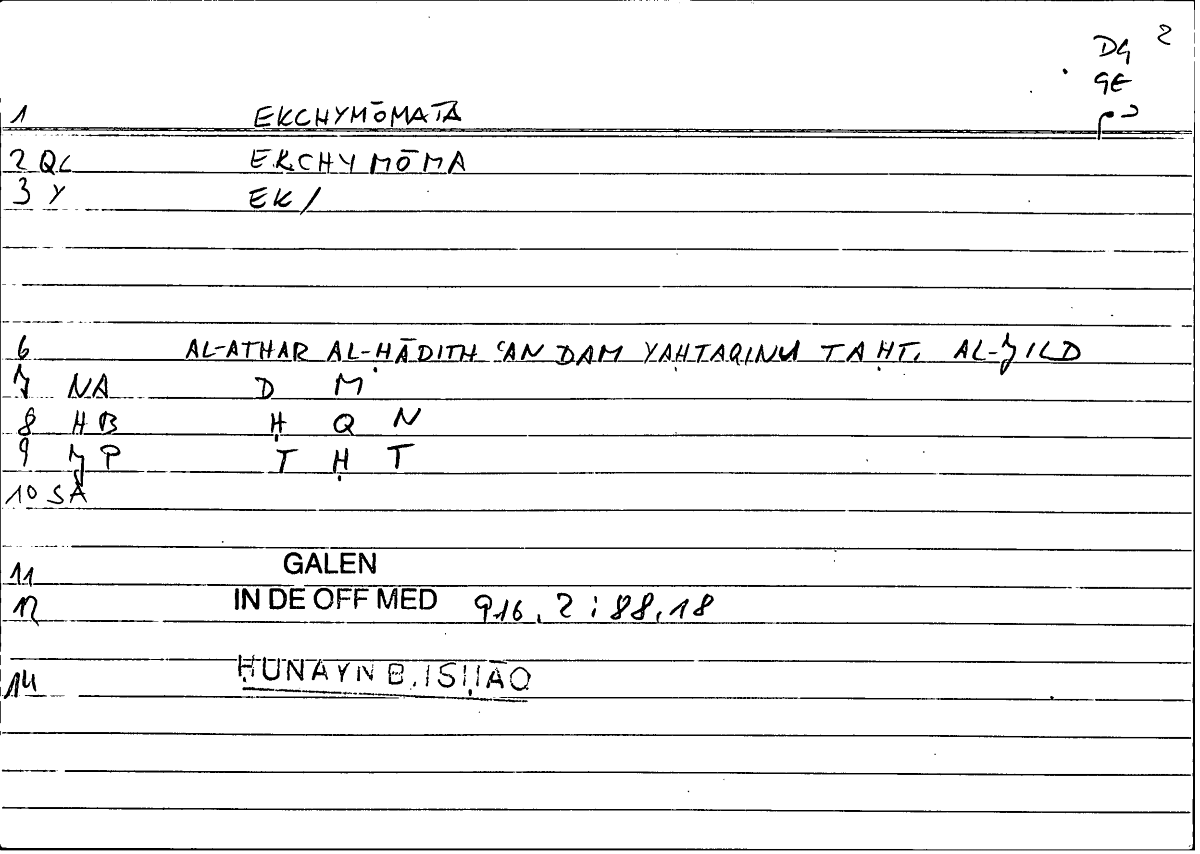 2
DG
GE
1 EKCHYMŌMATA
2 QL EKCHYMŌMA
3 Y EK/
6 AL-ATHAR AL-ḤĀDITH ʿAN DAM YAḤTAQINU TAḤT. AL-JILD
7 NA D M
8 HB Ḥ Q N
9 JP T Ḥ T
10 SA
11 GALEN
12 IN DE OFF MED 916, 2 ; 88,18
14 ḤUNAYN B. ISḤĀQ